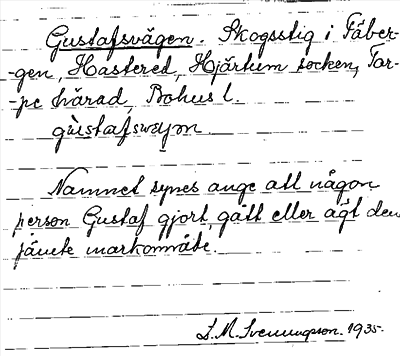 Gustafsvägen. Skogsstig i Fåber-
-gen, Hastered, Hjärtum socken, Tor-
-pe härad, Bohus l.
gùstafswæjən
Namnet synes ange att någon
person Gustaf gjort, gått eller ägt den
jämte markområde.
S. M. Svenungson. 1935.